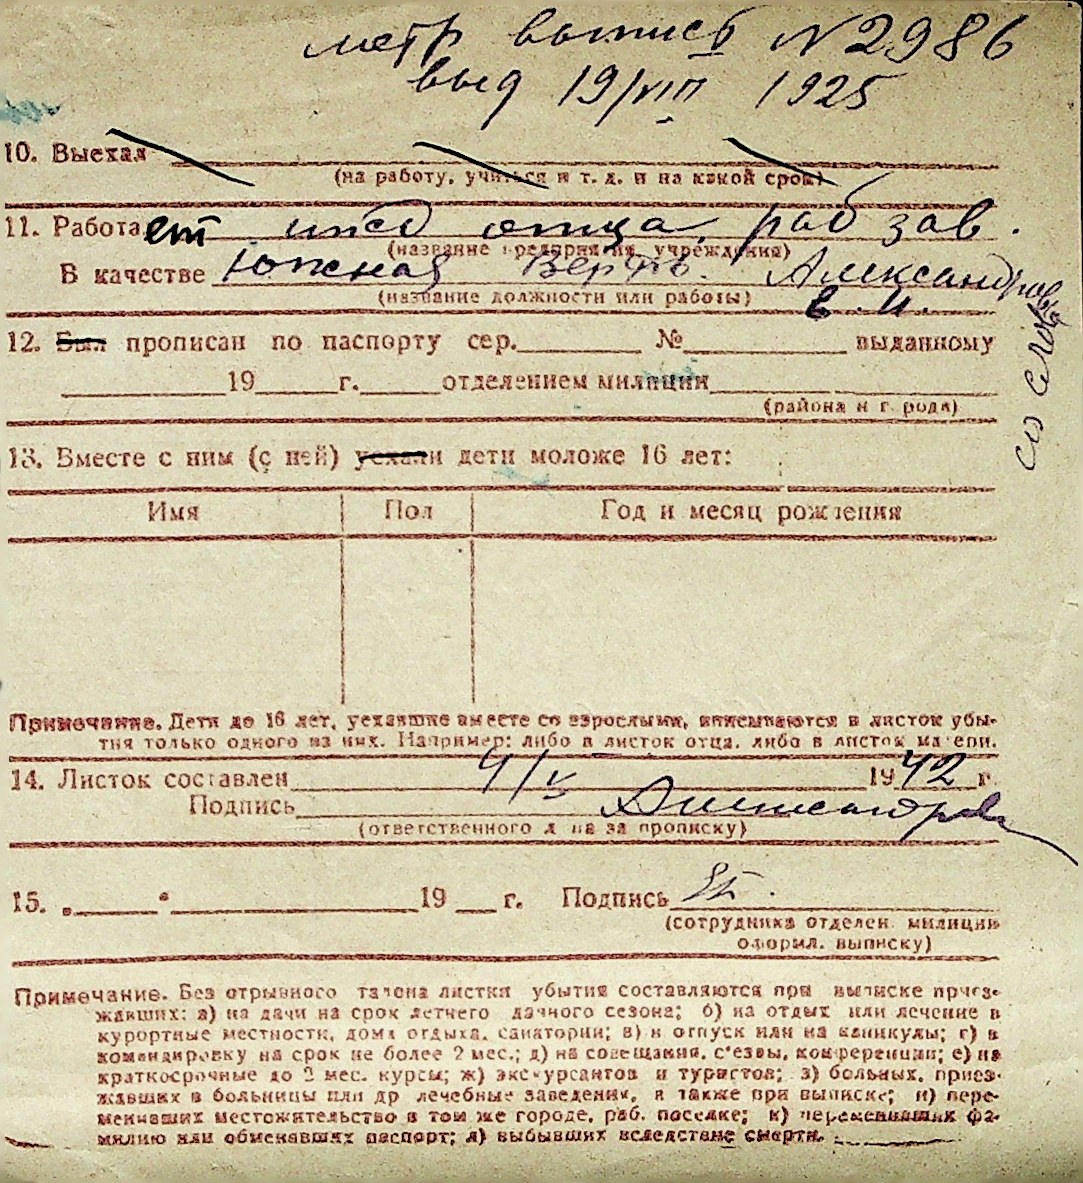 метр выпись N 2986
выд 19/VIII 1925
10. Выехал
(на работу, учиться и т. д. и на какой срок)
11. Работает ижд отца, раб зав.
(название предприятия, учреждения)
В качестве Южная Верфь. Александров
(название должности или работы) В. И.
со слов
12. Был прописан по паспорту сер. № выданному
19 г. отделением милиции
(района и города)
13. Вместе с ним (с ней) уехали дети моложе 16 лет:
Имя Пол Год и месяц рождения
Примечание. Дети до 16 лет, уехавшие вместе со взрослыми, вписываются в листок убы-
тия только одного из них. Например: либо в листок отца, либо в листок матери.
14. Листок составлен 4/V 1942 г.
Подпись Александрова
(ответственного л на за прописку)
15. „ “ 19 г. Подпись
(сотрудника отделен. милиции
оформл. выписку)
Примечание. Без отрывного талона листки убытия составляются при выписке приез-
жавших: а) на дачи на срок летнего дачного сезона; б) на отдых или лечение в
курортные местности, дома отдыха, санатории; в) в отпуск или на каникулы; г) в
командировку на срок не более 2 мес.; д) на совещания, с'езды, конференции; е) на
краткосрочные до 2 мес. курсы; ж) экскурсантов и туристов; з) больных, приез-
жавших в больницы или др лечебные заведения, а также при выписке; и) пере-
менивших местожительство в том же городе, раб. поселке; к) переменивших фа-
милию или обменявших паспорт; л) выбывших вследствие смерти.